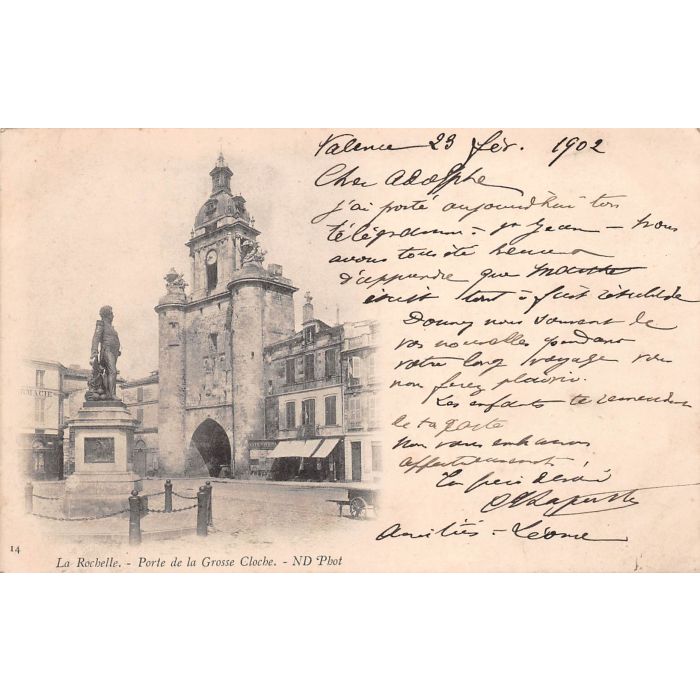 Valence 23 fév. 1902
Cher Adolphe
j'ai porté aujourd'hui ton
télégramme à Nous
avons tous été heureux
d'apprendre que
était tout à fait rétablie
Donnez nous souvent de
vos nouvelles pendant
votre long voyage vous
nous ferez plaisir.
Les enfants te remercient
de ta carte
Nous vous embrassons
affectueusement
Amitiés - Léonie
MACIE
14
La Rochelle. - Porte de la Grosse Cloche. - ND Phot